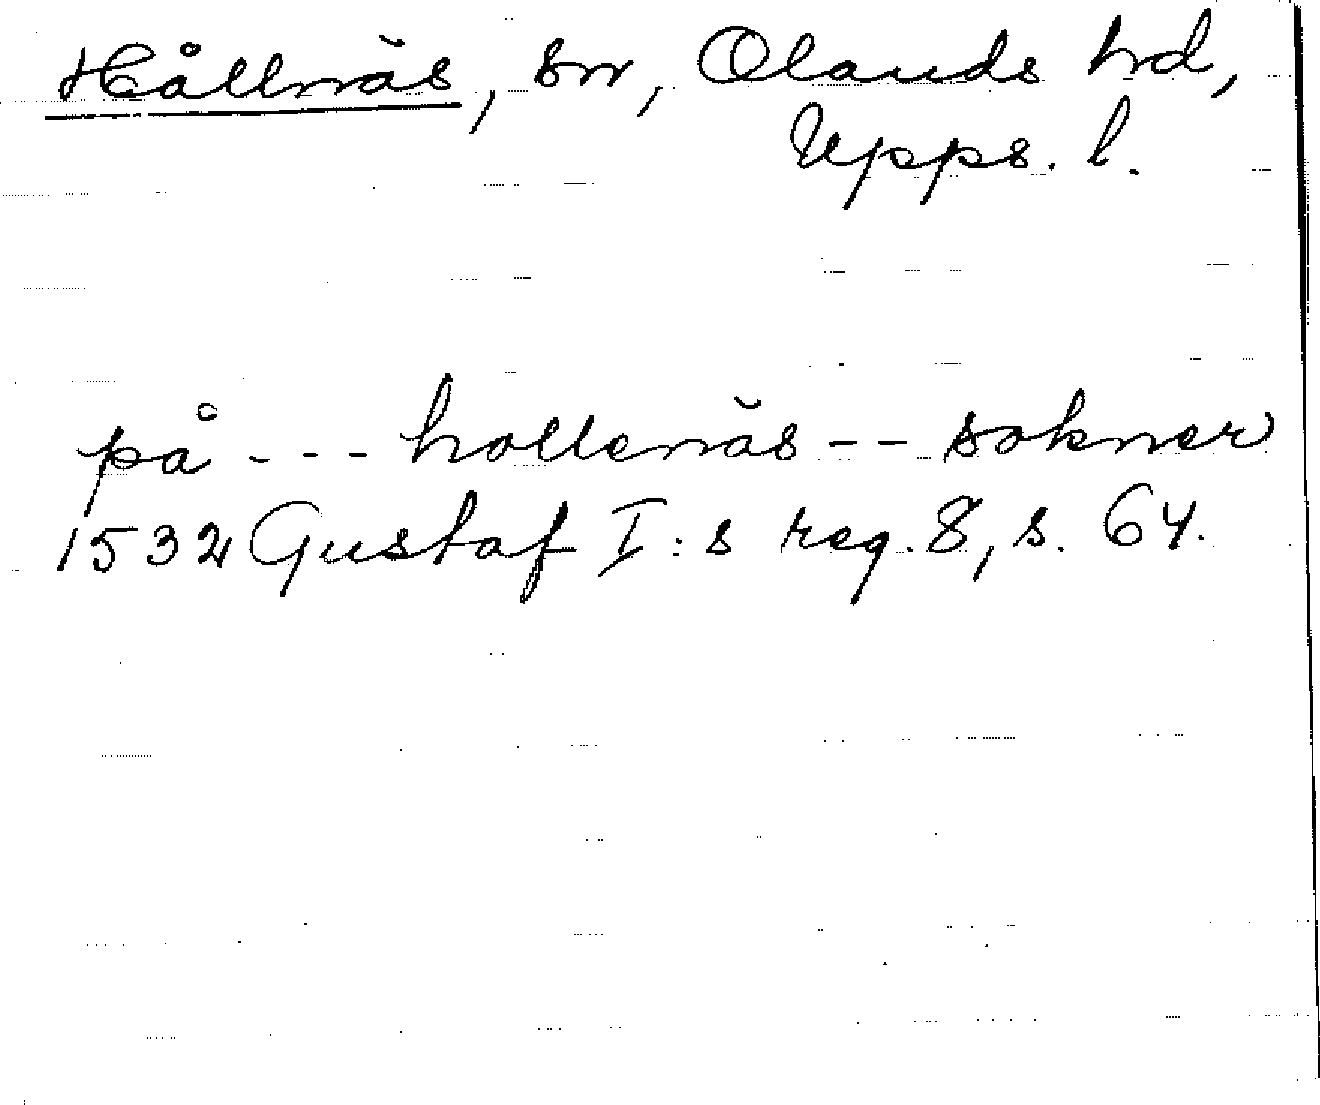 Hållnäs, sn, Olands hd,
Upps. l.
på --- hollenäs -- sokner
1532 Gustaf I:s reg. 8, s. 64.